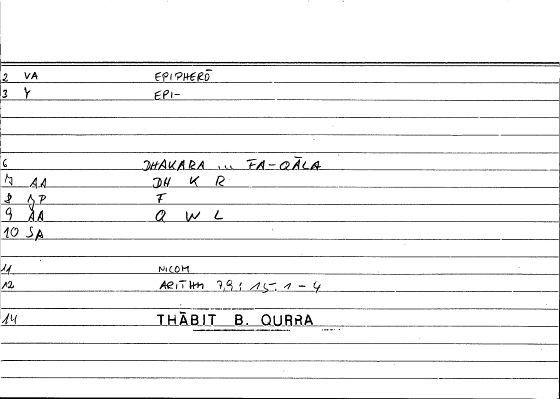 2 VA EPIPHERŌ
3 Y EPI-
6 DHAKARA ... FA-QĀLA
7 AA DH K R
8 AP F
9 AA Q W L
10 SA
11 NICOM
12 ARITHM 7,9; 15.1-4
14 THĀBIT B. QURRA